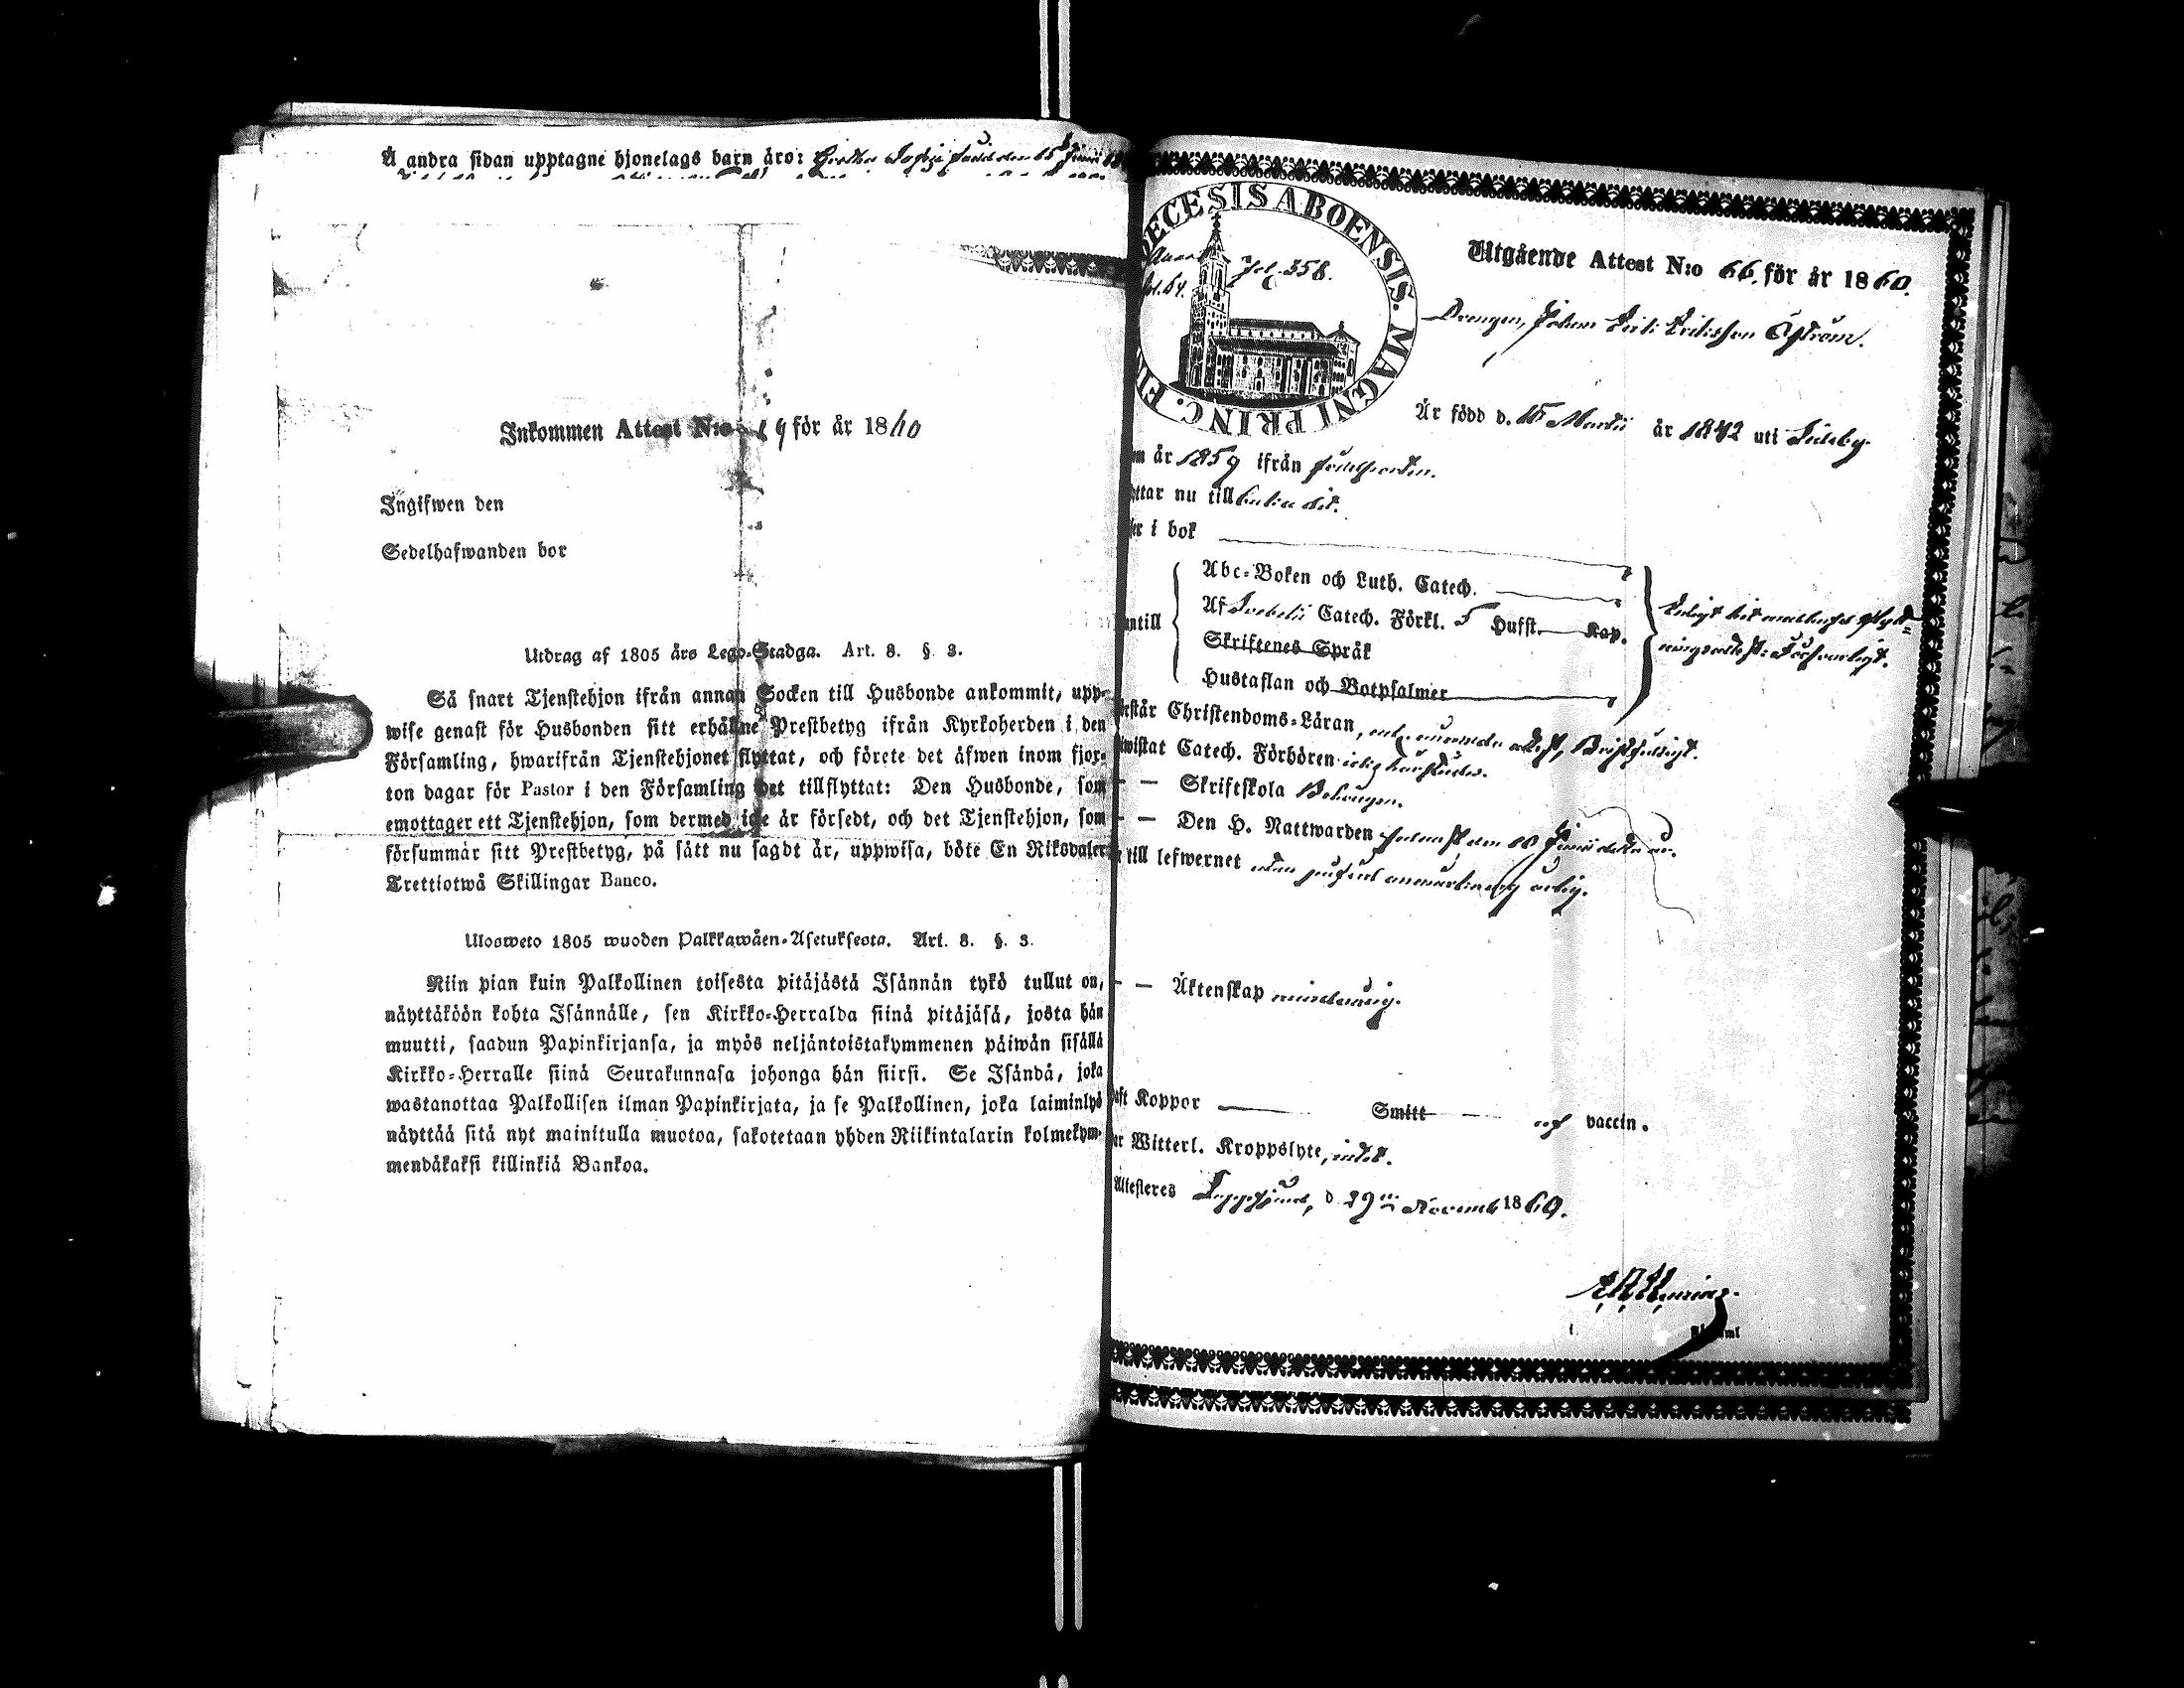 Å andra sidan upptagne hjonelags barn äro: Greta Sofia född den 15 Junii
Inkommen Attest N:o 19 för år 1860
Ingifwen den
Sedelhafwanden bor
Utdrag af 1805 års Lego-Stadga. Art. 8. § 3.
Så snart Tjenstehjon ifrån annan Socken till Husbonde ankommit, upp-
wise genast för Husbonden sitt erhållne Prestbetyg ifrån Kyrkoherden i den
Församling, hwarifrån Tjenstehjonet flyttat, och förete det äfwen inom fjor-
ton dagar för Pastor i den Församling det tillflyttat: Den Husbonde, som
emottager ett Tjenstehjon, som dermed icke är försedt, och det Tjenstehjon, som
försummar sitt Prestbetyg, på sätt nu sagdt är, uppwisa, böte En Riksdaler
Trettiotwå Skillingar Banco.
Ulosweto 1805 wuoden Palkkawäen-Asetuksesta. Art. 8. §. 3.
Niin pian kuin Palkollinen toisesta pitäjästä Isännän tykö tullut on,
näyttäköön kohta Isännälle, sen Kirkko-Herralda siinä pitäjäsä, josta hän
muutti, saadun Papinkirjansa, ja myös neljäntoistakymmenen päiwän sisällä
Kirkko-Herralle siinä Seurakunnasa johonga hän siirsi. Se Isändä, joka
wastanottaa Palkollisen ilman Papinkirjata, ja se Palkollinen, joka laiminlyö
näyttää sitä nyt mainitulla muotoa, sakotetaan yhden Riikintalarin kolmekym-
mendäkaksi killinkiä Bankoa.
DECESIS ABOENSIS. MAGNI PRINC.
fol. 358.
Utgående Attest N:o 66. för år 1860.
Drengen, Johan Erik Eriksson Öström.
Är född d. 15 Martii år 1842 uti Sideby
år 1859 ifrån
nu till
i bok
Abc-Boken och Luth. Catech.
Af Svebelii Catech. Förkl. 5 Hufst. Kap.
Skriftenes Språk
Hustaflan och Botpsalmer
Christendoms-Läran,
Catech. Förhören
— — Skriftskola Behörigen.
— — Den H. Nattwarden den 18 Junii detta år.
till lefwernet utan anmärkning ärlig.
— — Äktenskap minderårig.
Koppor Smitt vaccin.
Witterl. Kroppslyte, intet.
Attesteres Lappfjärd, d. 29 Novemb 1860.